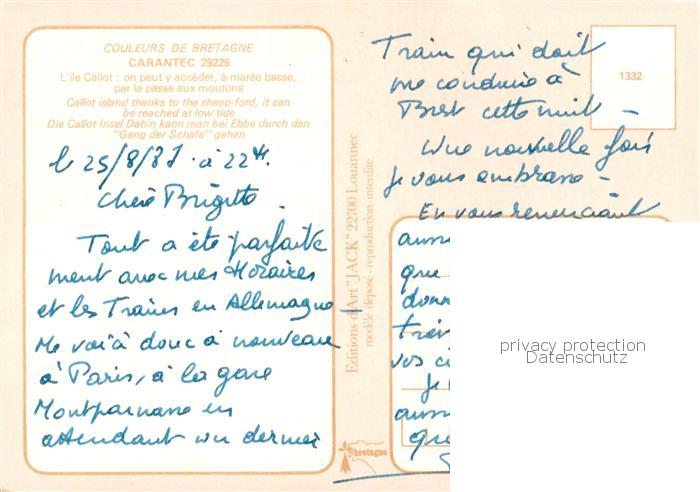 COULEURS DE BRETAGNE
CARANTEC 29226
L'île Callot : on peut y accéder, à marée basse,
par la passe aux moutons
Callot island thanks to the sheep-ford, it can
be reached at low tide
Die Callot Insel Dahin kann man bei Ebbe durch den
"Gang der Schafe" gehen
le 25/8/87 à 22H.
Chère Brigitte.
Tout a été parfaite
ment avec mes Horaires
et les Trains en Allemagne
Me voilà donc à nouveau
à Paris, à la gare
Montparnasse en
attendant un dernier
Editions d'Art "JACK" 22700 Louannec
modèle déposé - reproduction interdite
bretagne
1332
Train qui doit
me conduire à
Brest cette nuit –
Une nouvelle fois
je vous embrasse –
En vous remerciant
aussi
que
donn
trav
vos
Je
aussi
que
privacy protection
Datenschutz